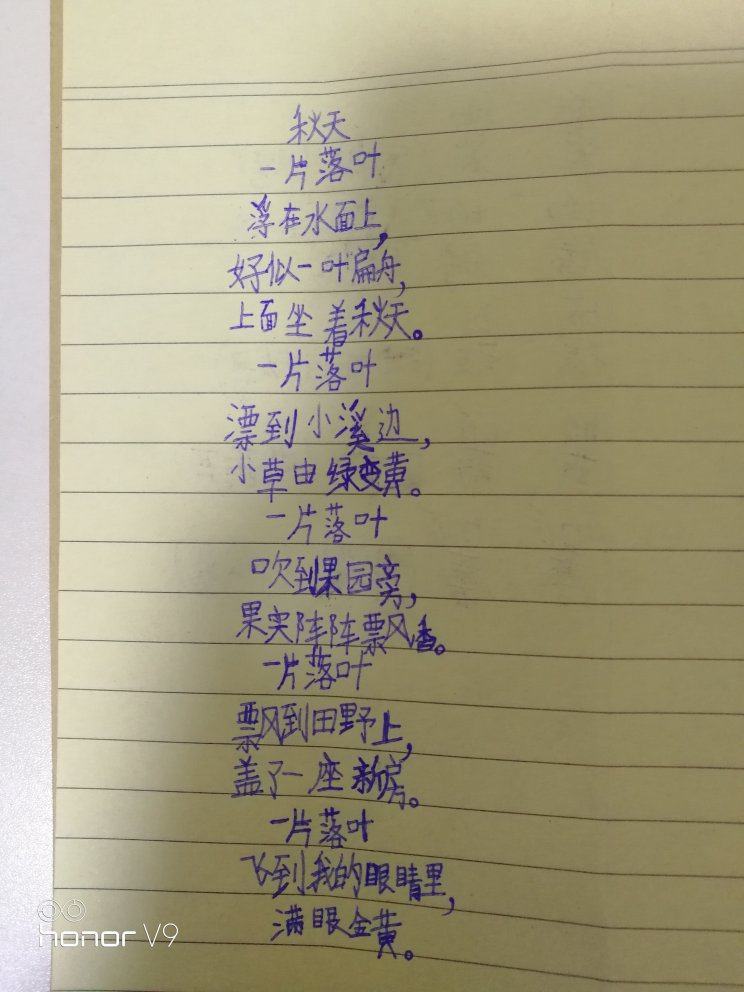 秋天
一片落叶
浮在水面上,
好似一叶扁舟,
上面坐着秋天。
一片落叶
漂到小溪边,
小草由绿变黄。
一片落叶
吹到果园旁,
果实阵阵飘香。
一片落叶
飘到田野上,
盖了一座新房。
一片落叶
飞到我的眼睛里,
满眼金黄。
honor V9